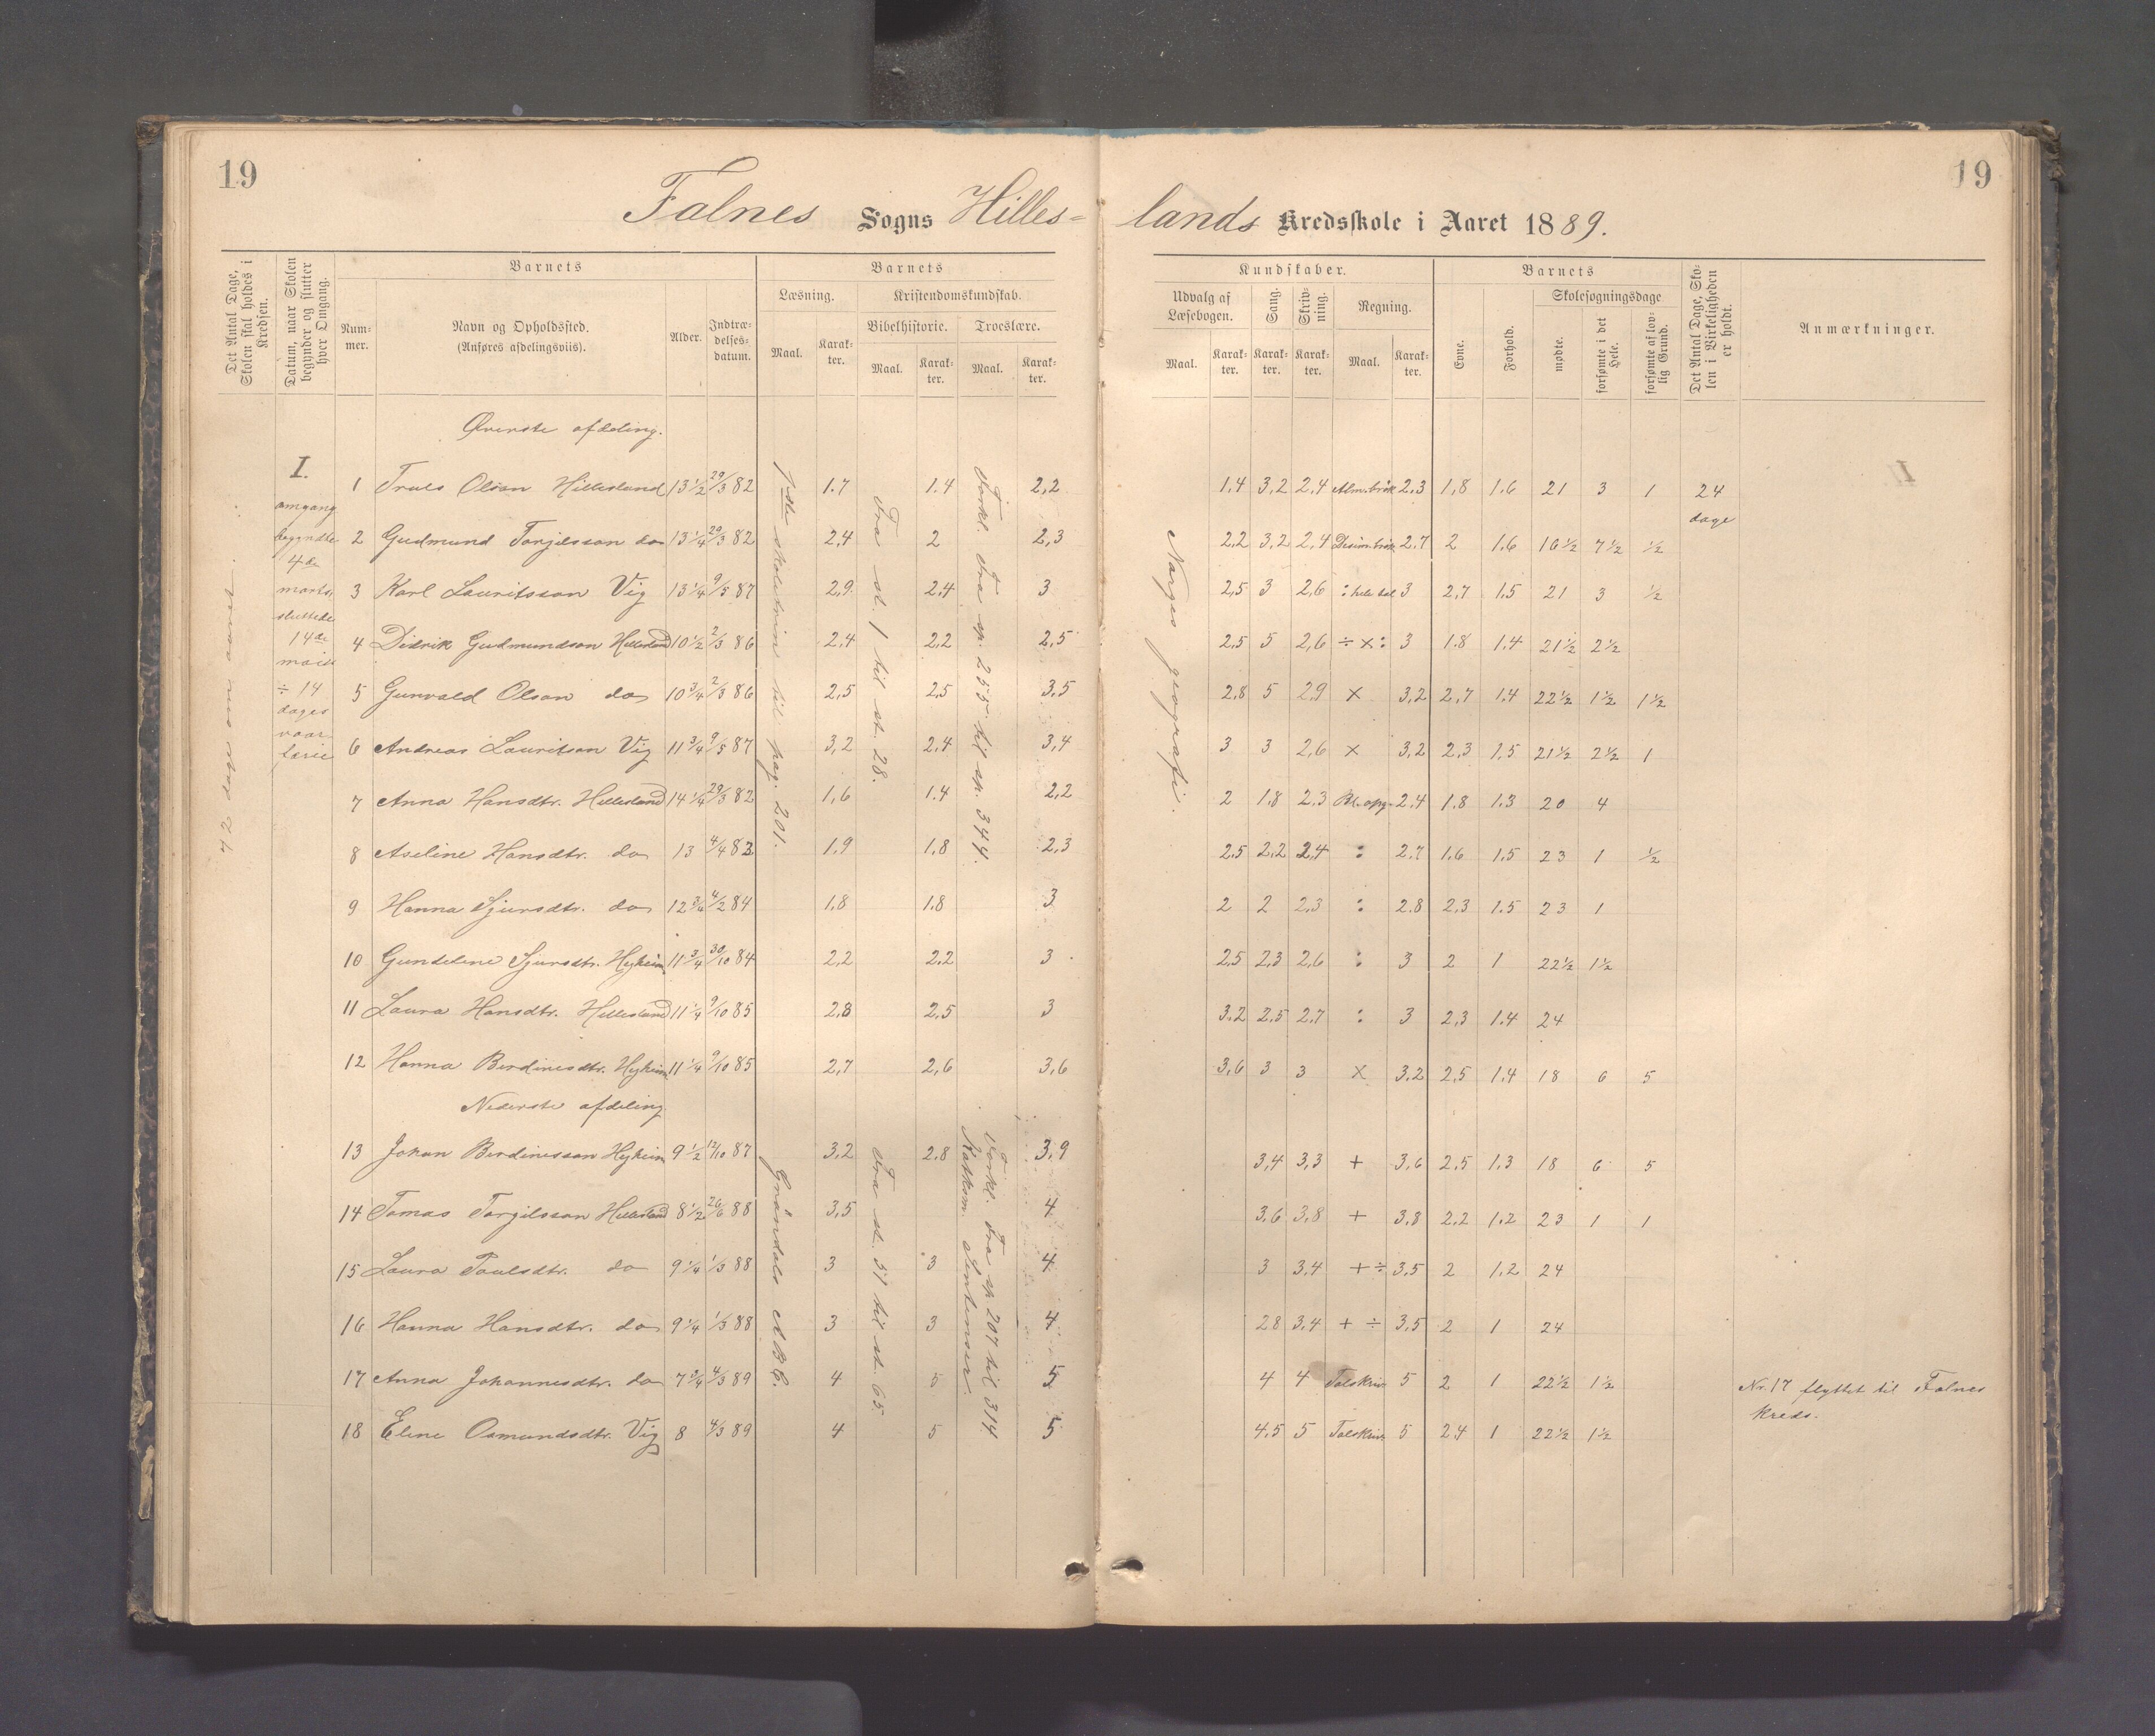 19
19
Falnes Sogns Hilles-
lands Kredsskole i Aaret 1889.
Det Antal Dage, Skolen skal holdes i Kredsen.
Datum, naar Skolen begynder og slutter hver Omgang.
Barnets
Nummer.
Navn og Opholdssted.
(Anføres afdelingsviis).
Alder.
Indtrædelsesdatum.
Barnets
Læsning.
Maal.
Karakter.
Kristendomskundskab.
Bibelhistorie.
Maal.
Karakter.
Troeslære.
Maal.
Karakter.
Kundskaber.
Udvalg af Læsebogen.
Maal.
Karakter.
Sang.
Karakter.
Skrivning.
Karakter.
Regning.
Maal.
Karakter.
Barnets
Evne.
Forhold.
Skolesøgningsdage
mødte.
forsømte i det Hele.
forsømte af lovlig Grund.
Det Antal Dage, Skolen i Virkeligheden er holdt.
Anmærkninger.
Øverste afdeling.
I.
omgang
begyndte
4de
marts
sluttede
14de
mai
÷ 14
dages
vaar
ferie
1 Truls Olson Hillesland 13 1/2 29/3 82 1.7 1.4 2,2 1,4 3,2 2,4 Alm.brøk 2.3 1,8 1.6 21 3 1 24 dage
2 Gudmund Torjilsson do 13 1/4 29/3 82 2,4 2 2,3 2,2 3,2 2,4 Desim.brøk 2.7 2 1.6 16 1/2 7 1/2 1/2
3 Karl Lauritsson Vig 13 1/4 9/5 87 2,9 2,4 3 2,5 3 2,6 : hele tal 3 2,7 1,5 21 3 1/2
4 Didrik Gudmundson Hillesland 10 1/2 2/3 86 2,4 2,2 2,5 2,5 5 2,6 ÷ x : 3 1.8 1.4 21 1/2 2 1/2
5 Gunvald Olson do 10 3/4 2/3 86 2,5 2,5 3,5 2,8 5 2,9 x 3,2 2,7 1,4 22 1/2 1 1/2 1 1/2
6 Andreas Lauritson Vig 11 3/4 9/5 87 3,2 2,4 3,4 3 3 2,6 x 3,2 2,3 1,5 21 1/2 2 1/2 1
7 Anna Hansdtr. Hillesland 14 1/4 29/3 82 1,6 1.4 2,2 2 1.8 2.3 Bl. opg. 2.4 1.8 1.3 20 4
8 Aseline Hansdtr. do 13 4/4 83 1.9 1.8 2,3 2.5 2.2 2.4 : 2.7 1.6 1.5 23 1 1/2
9 Hanna Sjursdtr. do 12 3/4 4/2 84 1,8 1.8 3 2 2 2,3 : 2.8 2,3 1.5 23 1
10 Gundeline Sjursdtr. Hyheim 11 3/4 30/10 84 2,2 2.2 3 2,5 2,3 2,6 : 3 2 1 22 1/2 1 1/2
11 Laura Hansdtr. Hillesland 11 1/4 9/10 85 2.8 2,5 3 3.2 2.5 2.7 : 3 2,3 1.4 24
12 Hanna Berdinesdtr. Hyheim 11 1/4 9/10 85 2,7 2,6 3,6 3,6 3 3 x 3.2 2,5 1.4 18 6 5
Nederste afdeling
13 Johan Berdinesson Hyheim 9 1/2 12/10 87 3,2 2.8 3,9 3,4 3,3 + 3,6 2,5 1,3 18 6 5
14 Tomas Torgilsson Hillesland 8 1/2 26/6 88 3,5 4 3,6 3,8 + 3,8 2,2 1.2 23 1 1
15 Laura Paulsdtr. do 9 1/4 1/3 88 3 3 4 3 3,4 + ÷ 3,5 2 1,2 24
16 Hanna Hansdtr. do 9 1/4 1/3 88 3 3 4 2.8 3,4 + ÷ 3,5 2 1 24
17 Anna Johannesdtr. do 7 3/4 4/3 89 4 5 5 4 4 Talskriv. 5 2 1 22 1/2 1 1/2 Nr. 17 flyttet til Falnes
kreds.
18 Eline Osmundsdtr. Vig 8 4/3 89 4 5 5 4.5 5 Talskriv. 5 2.4 1 22 1/2 1 1/2
til pag. 201.
Fra st. 1 til st. 28.
Forkl. fra sp. 255 til sp. 344.
Norges geografi.
Grøndals ABC.
Fra st. 57 til st. 65
Forkl. fra sp 207 til 314